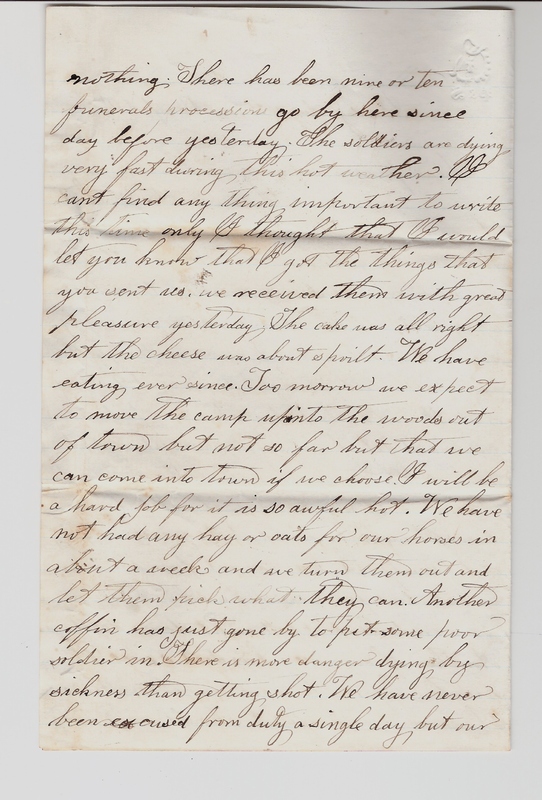 nothing. There has been nine or ten
funerals procession go by here since
day before yesterday. The soldiers are dying
very fast during this hot weather. I
cant find any thing important to write
this time only I thought that I would
let you know that I got the things that
you sent us. we received them with great
pleasure yesterday, The cake was all right
but the cheese was about spoilt. We have
eating ever since. Too morrow we expect
to move the camp up into the woods out
of town but not so far but that we
can come into town if we choose. I will be
a hard job for it is so awful hot. We have
not had any hay or oats for our horses in
about a week and we turn them out and
let them pick what they can. Another
coffin has just gone by to put some poor
soldier in. There is more danger dying by
sickness than getting shot. We have never
been excused from duty a single day but our